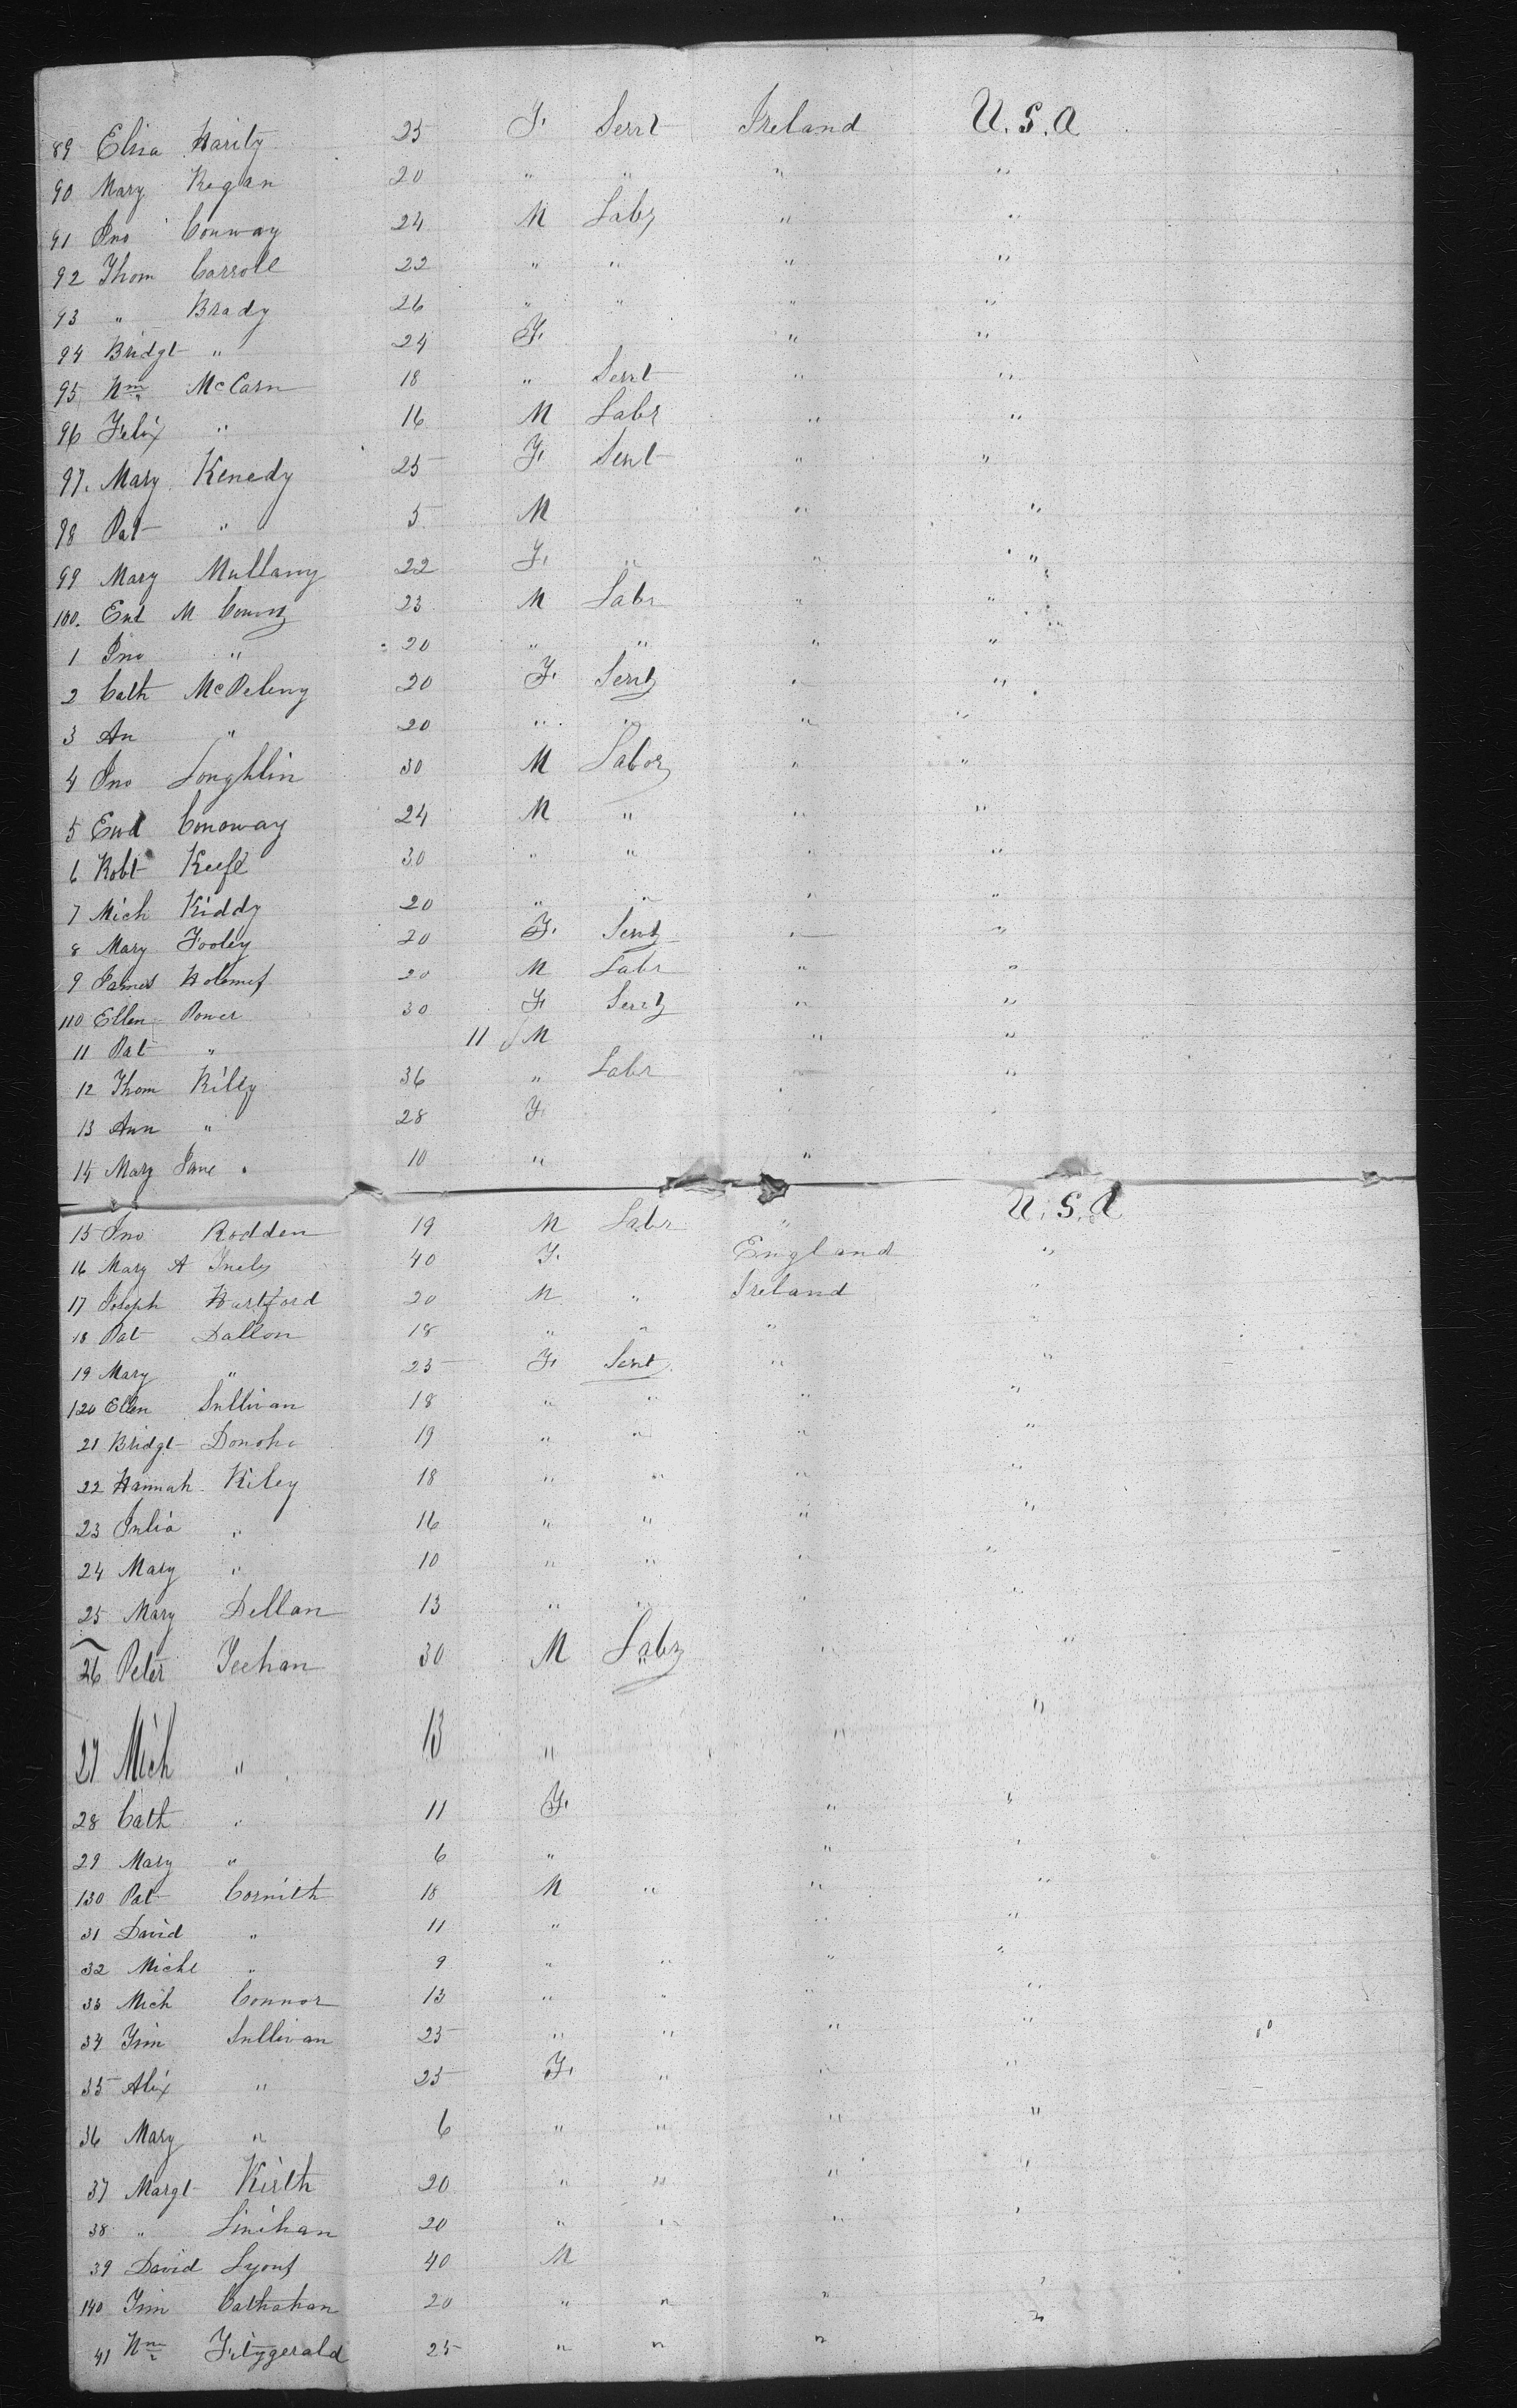 89 Elisa Harity 25 F. Servt Ireland U.S.A
90 Mary Regan 20 " " " "
91 Jno Conway 24 M Labr " "
92 Thom Carroll 22 " " " "
93 " Brady 26 " " " "
94 Bridgt " 24 F. " "
95 Wm McCarn 18 " Servt " "
96 Felix " 16 M Labr " "
97. Mary Kenedy 25 F. Servt " "
98 Pat " 5 M " "
99 Mary Mullany 22 F. " " "
100. 23 M Labr " "
1 Jno " 20 " " " "
2 Cath 20 F. Servt " "
3 An " 20 " " " "
4 Jno Loughlin 30 M Labor " "
5 Ewd Conoway 24 M " " "
6 Robt Keefe 30 " " " "
7 Mich Kiddy 20 " " " "
8 Mary Fooley 20 F. Servt " "
9 James Holemes 20 M Labr " "
110 Ellen Power 30 F. Servt " "
11 Pat " 11 M " "
12 Thom Riley 36 " Labr " "
13 Ann " 28 F. " "
14 Mary Jane " 10 " "
15 Jno Rodden 19 M Labr " U.S.A
16 Mary A 40 F. England "
17 Joseph Hartford 20 M " Ireland "
18 Pat Dallon 18 " " " "
19 Mary " 25 F. Servt " "
120 Ellen Sullivan 18 " " " "
21 Bridgt Donoho 19 " " " "
22 Hannah Kiley 18 " " " "
23 Julia " 16 " " " "
24 Mary " 10 " " " "
25 Mary Dellan 13 " " " "
26 Peter Feehan 30 M Labr " "
27 Mich " 13 " " "
28 Cath " 11 F. " "
29 Mary " 6 " " "
130 Pat Cornith 18 M " " "
31 David " 11 " " "
32 Michl " 9 " " " "
33 Mich Connor 13 " " " "
34 Tim Sullivan 25 " " " "
35 Alix " 25 F. " " "
36 Mary " 6 " " " "
37 Margt Kirth 20 " " " "
38 " Linihan 20 " " " "
39 David Lyons 40 M
140 Tim Cathahan 20 " " " "
41 Wm Fitzgerald 25 " " " "